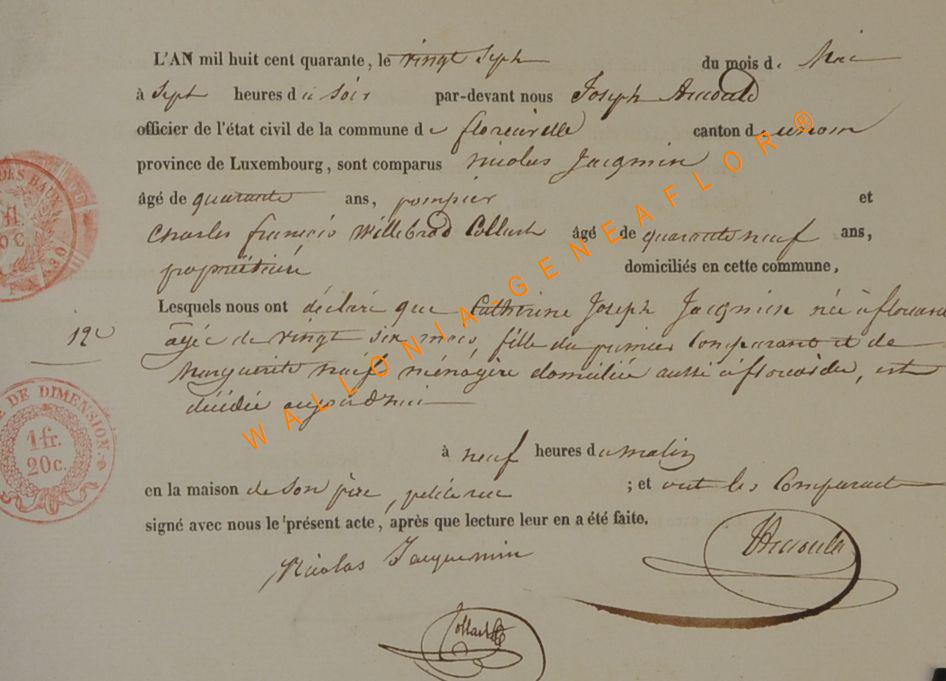 L'AN mil huit cent quarante, le vingt Sept du mois de Mai
à Sept heures du soir par-devant nous Joseph
officier de l'état civil de la commune de florenville canton d
province de Luxembourg, sont comparus Nicolas Jacqmin
âgé de quarante ans, pompier et
Charles françois Willebrod Collart âgé de quarante neuf ans,
propriétaire domiciliés en cette commune,
Lesquels nous ont déclaré que Catherine Joseph Jacqmin née à
12e
agée de vingt six mois, fille du premier Comparant et de
Marguerite ménagère domiciliée aussi à, est
décédée aujourd'hui
à neuf heures du matin
en la maison de Son père, petite rue ; et ont les Comparant
signé avec nous le présent acte, après que lecture leur en a été faite.
Nicolas Jacquemin
Collart
DES BAUX
DE DIMENSION.
1 fr.
20 c.
WALLONIA-GENEAFLOR®